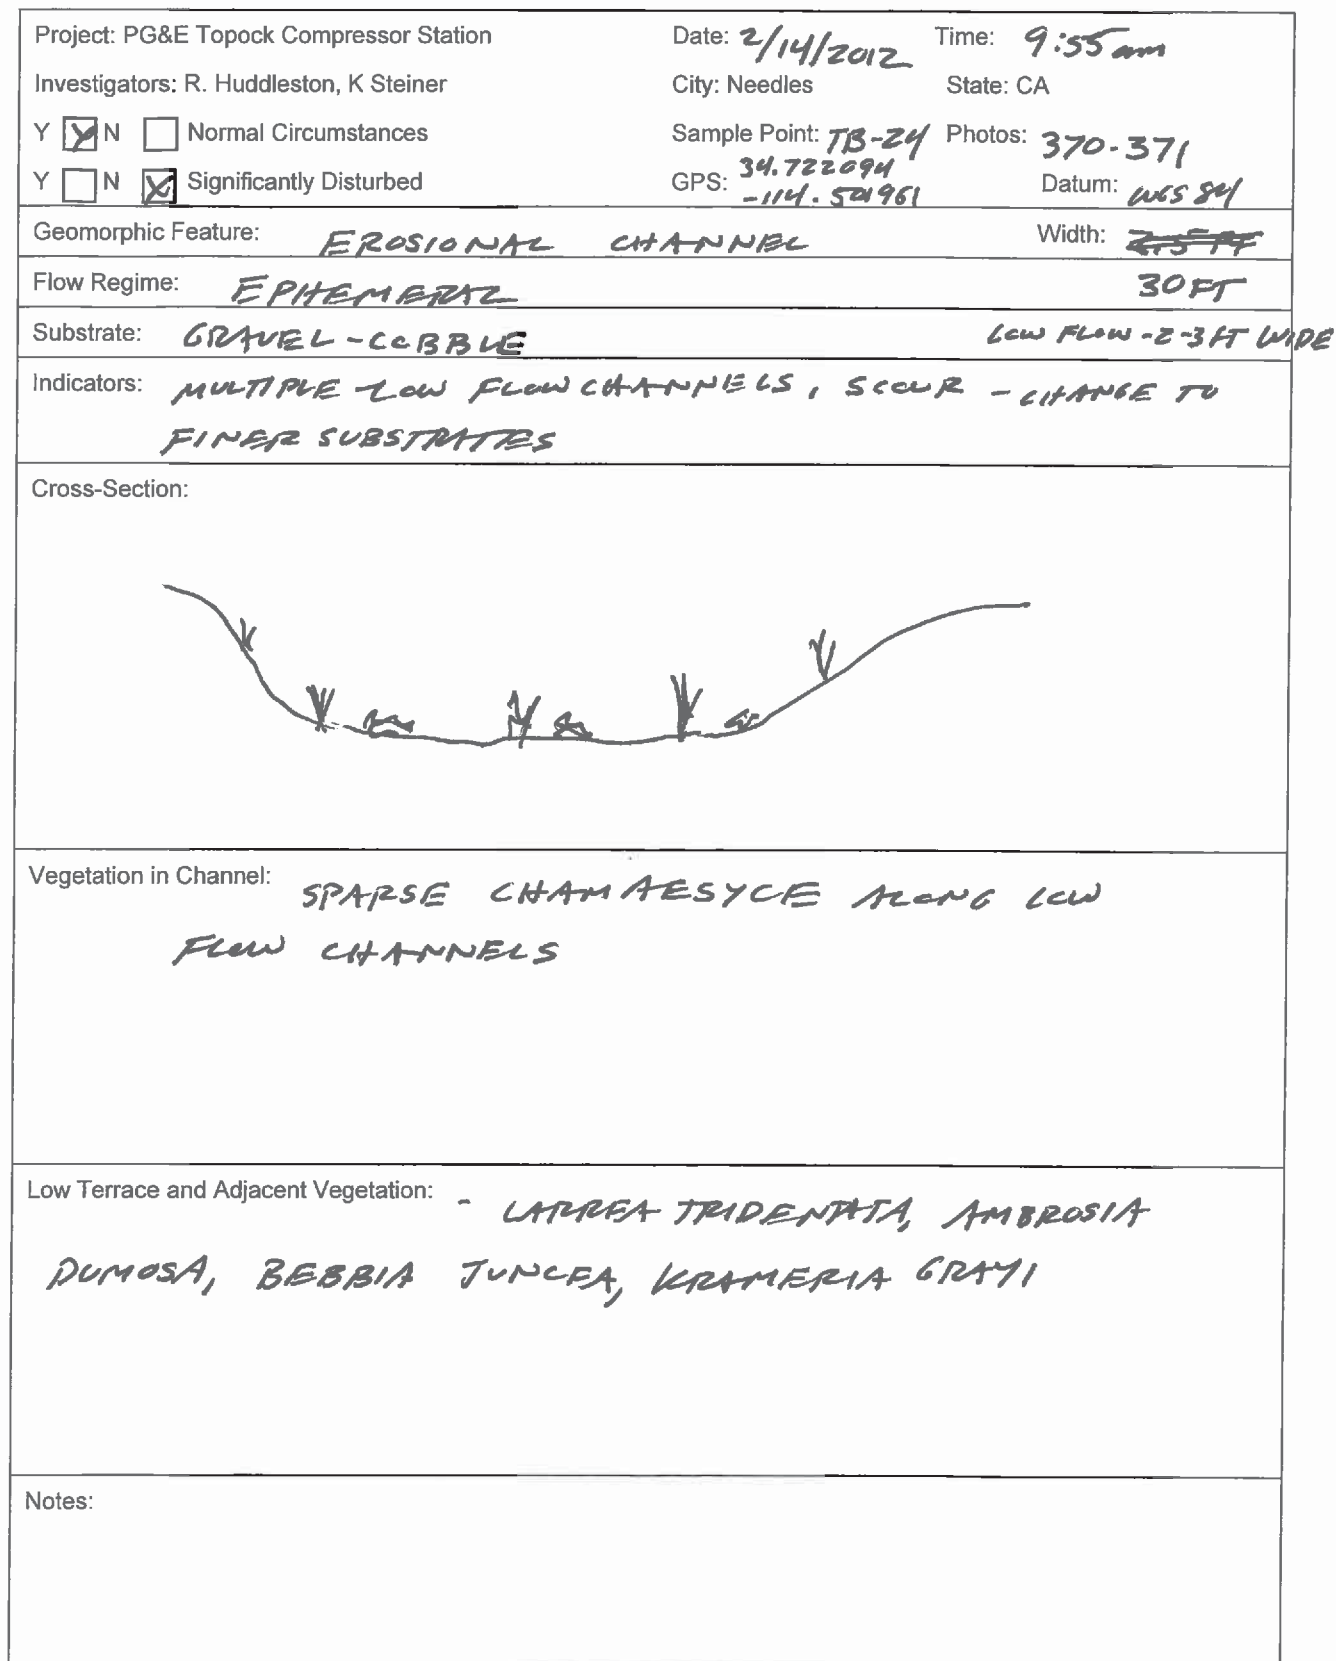 Project: PG&E Topock Compressor Station Date: 2/14/2012 Time: 9:55 am
Investigators: R. Huddleston, K Steiner City: Needles State: CA
Y N Normal Circumstances Sample Point: TB-24 Photos: 370-371
Y N Significantly Disturbed GPS: 34.722094 -114.501961 Datum: WGS 84
Geomorphic Feature: EROSIONAL CHANNEL Width: 2.5 FT
Flow Regime: EPHEMERAL 30 FT
Substrate: GRAVEL - COBBLE LOW FLOW - 2-3 FT WIDE
Indicators: MULTIPLE LOW FLOW CHANNELS, SCOUR - CHANGE TO
FINER SUBSTRATES
Cross-Section:
Vegetation in Channel: SPARSE CHAMAESYCE ALONG LOW
FLOW CHANNELS
Low Terrace and Adjacent Vegetation: - LARREA TRIDENTATA, AMBROSIA
DUMOSA, BEBBIA JUNCEA, KRAMERIA GRAYI
Notes: